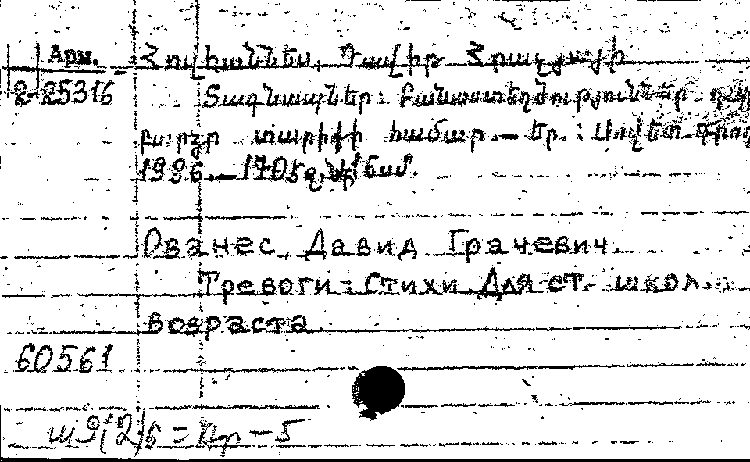 Арм.
2-25316
Հովհաննես, Դավիթ Հրաչյայի
Տագնապներ: Բանաստեղծություններ
բարձր տարիքի համար.— Եր.: Սովետ. գրող
1986.— 170 էջ, 16սմ.
Ованес, Давид Грачевич.
Тревоги: Стихи. Для ст. школ.
возраста.
60561